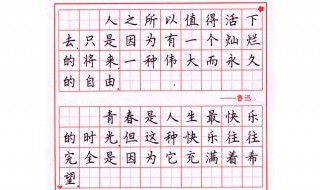 人之所以值得活下
去,只是因为有一个灿烂
的将来一种伟大而永久
的自由.
——鲁迅
青春是人生最快乐
的时光.但这种快乐往往
完全是因为它充满着希
望.